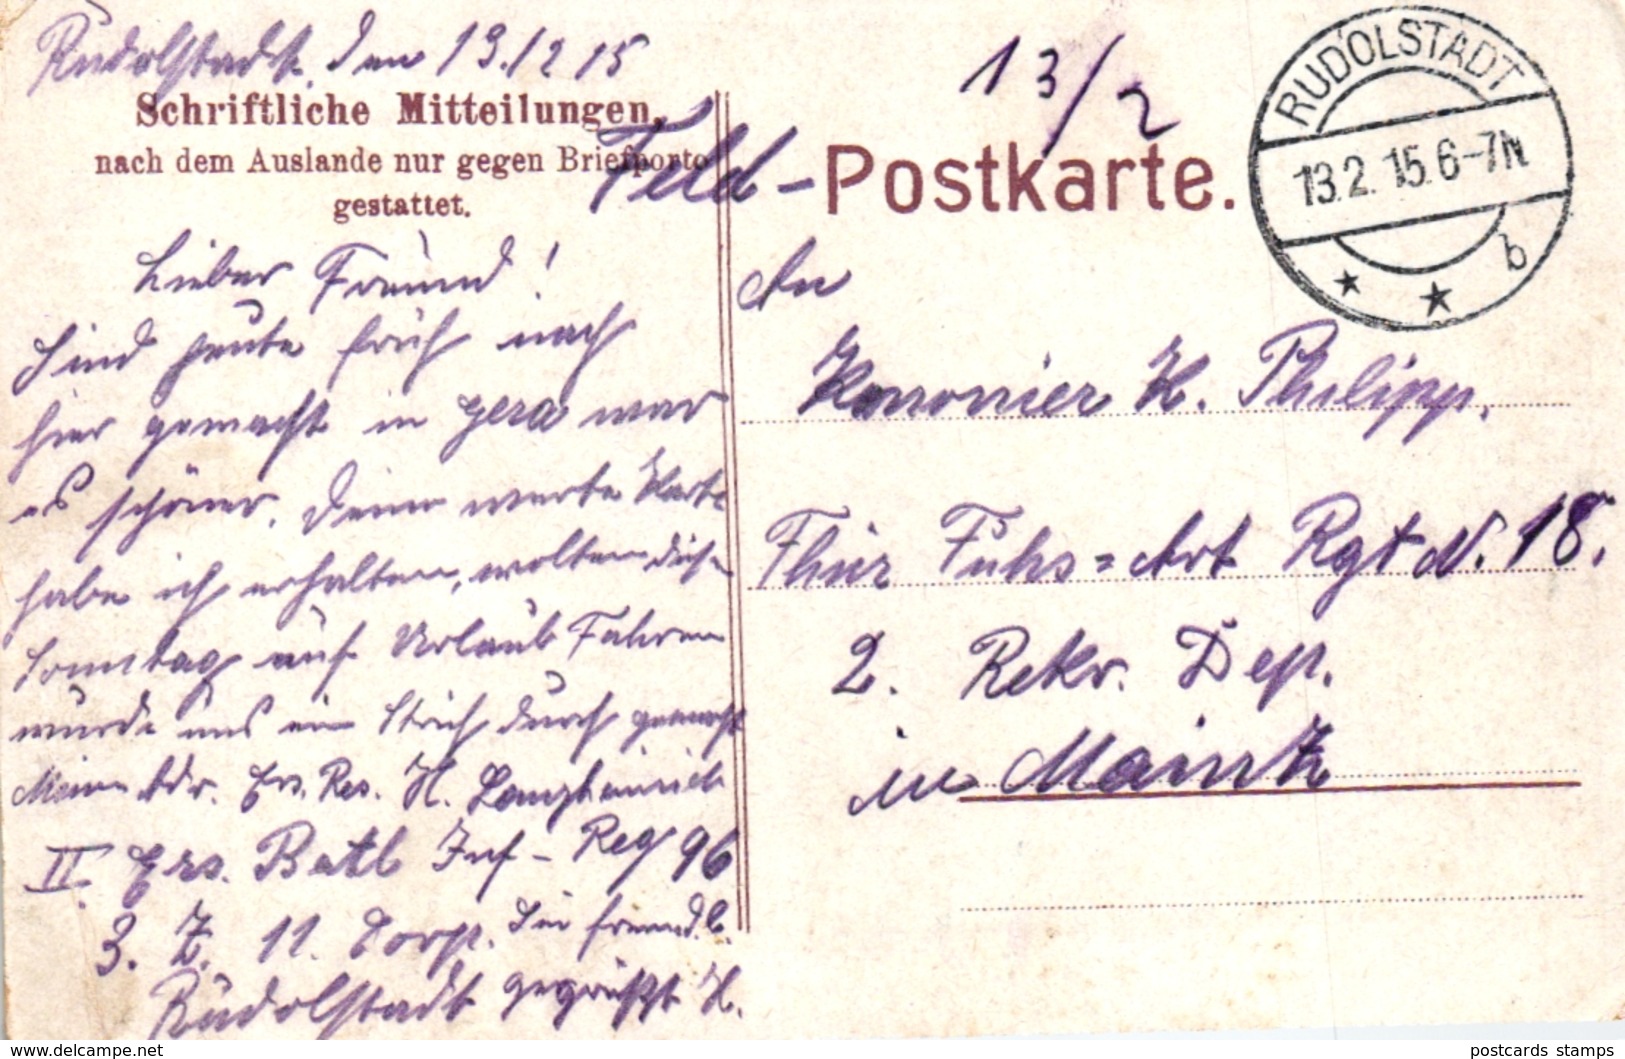 Rudolstadt, den 13./2 15
Schriftliche Mitteilungen,
nach dem Auslande nur gegen Briefporto
gestattet.
Lieber Freund!
Sind heute früh nach
hier gemacht in Gera war
es schöner. Deine werte Karte
habe ich erhalten, wollten diesen
Sonntag auf Urlaub Fahren
wurde uns ein Strich durch gemacht
Meine Adr. Ers. Res. H. Langheinrich
II. Ers. Batl Inf - Reg 96
3. Z. 11. Corp. Sei freundl.
Rudolstadt gegrüßt H.
13/2
Feld-Postkarte.
RUDOLSTADT
13.2.15.6-7N
b
An
Kononier K. Philipp.
Thür Fuhs=Art Rgt N. 18.
2. Rekr. Dep.
in Maintz
postcards stamps
© www.delcampe.net